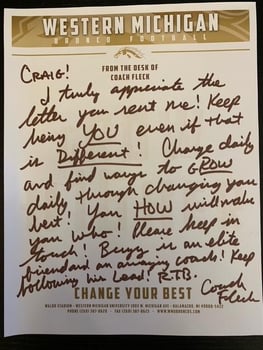 WESTERN MICHIGAN
BRONCO FOOTBALL
FROM THE DESK OF
COACH FLECK
CRAIG!
I truly appreciate the
letter you sent me! Keep
being YOU even if that
is Different! Change daily
and find ways to GROW
daily through changing your
best! You HOW will make
you Who! Please keep in
touch! Being an elite
friend and an amazing coach! Keep
following his Lead! R.T.B.
Coach
Fleck
CHANGE YOUR BEST
WALDO STADIUM - WESTERN MICHIGAN UNIVERSITY 1903 W. MICHIGAN AVE - KALAMAZOO, MI 49008-5422